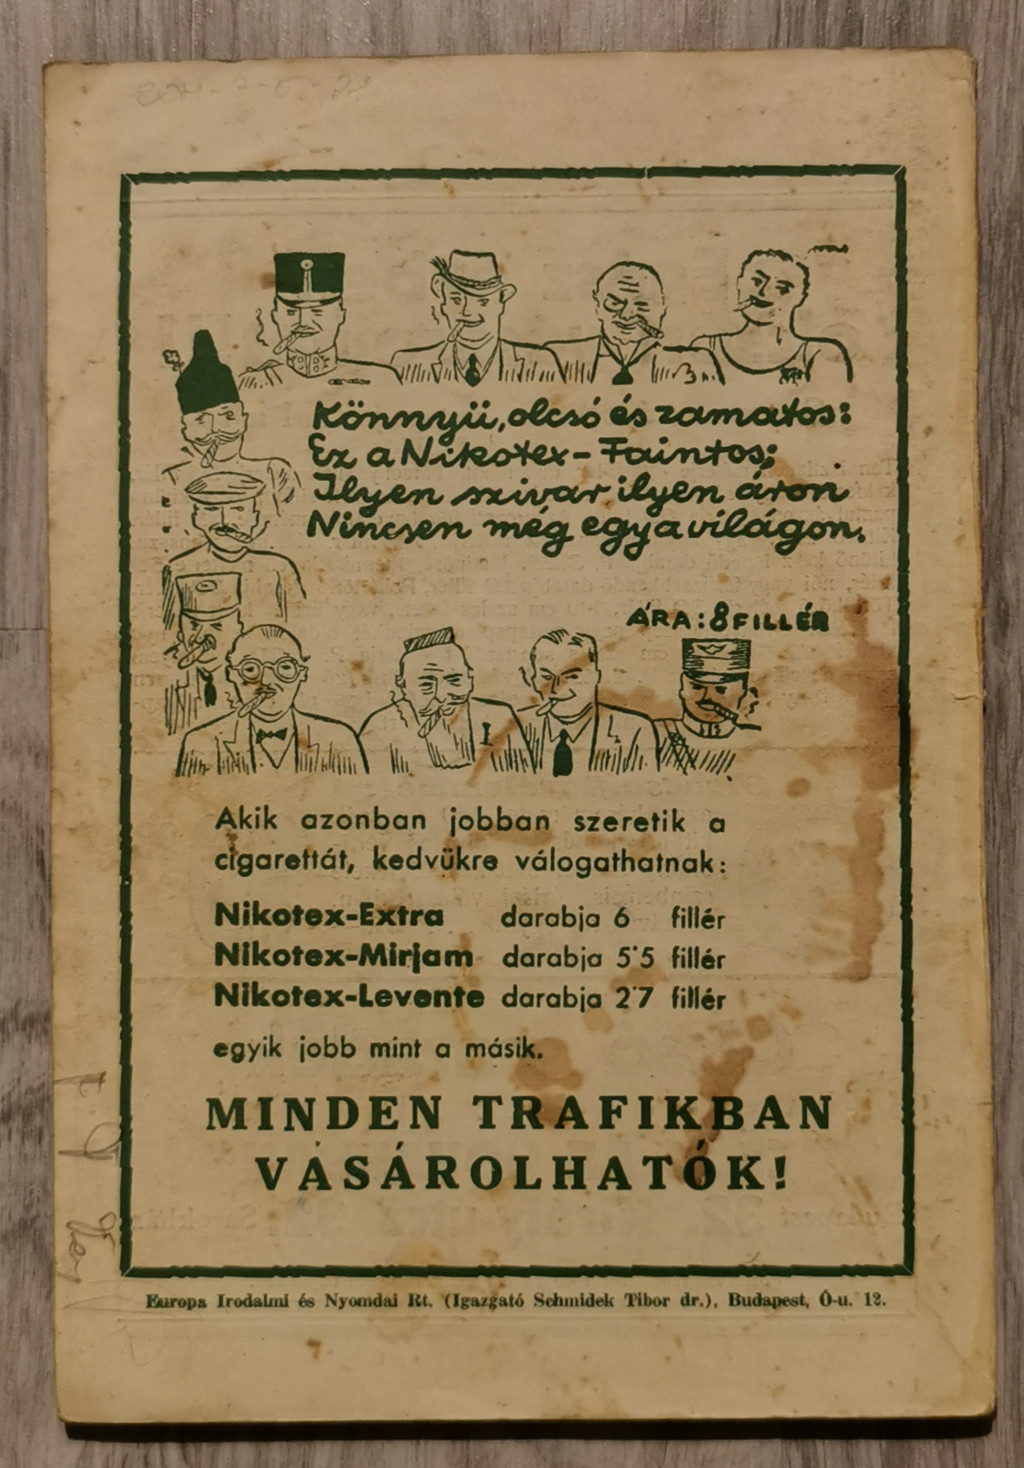 Könnyü, olcsó és zamatos:
Ez a Nikotex-Faintos;
Ilyen szivar ilyen áron
Nincsen még egy a világon.
ÁRA: 8 FILLÉR
Akik azonban jobban szeretik a
cigarettát, kedvükre válogathatnak:
Nikotex-Extra darabja 6 fillér
Nikotex-Mirjam darabja 5˙5 fillér
Nikotex-Levente darabja 2˙7 fillér
egyik jobb mint a másik.
MINDEN TRAFIKBAN
VÁSÁROLHATÓK!
Europa Irodalmi és Nyomdai Rt. (Igazgató Schmidek Tibor dr.), Budapest, Ó-u. 12.